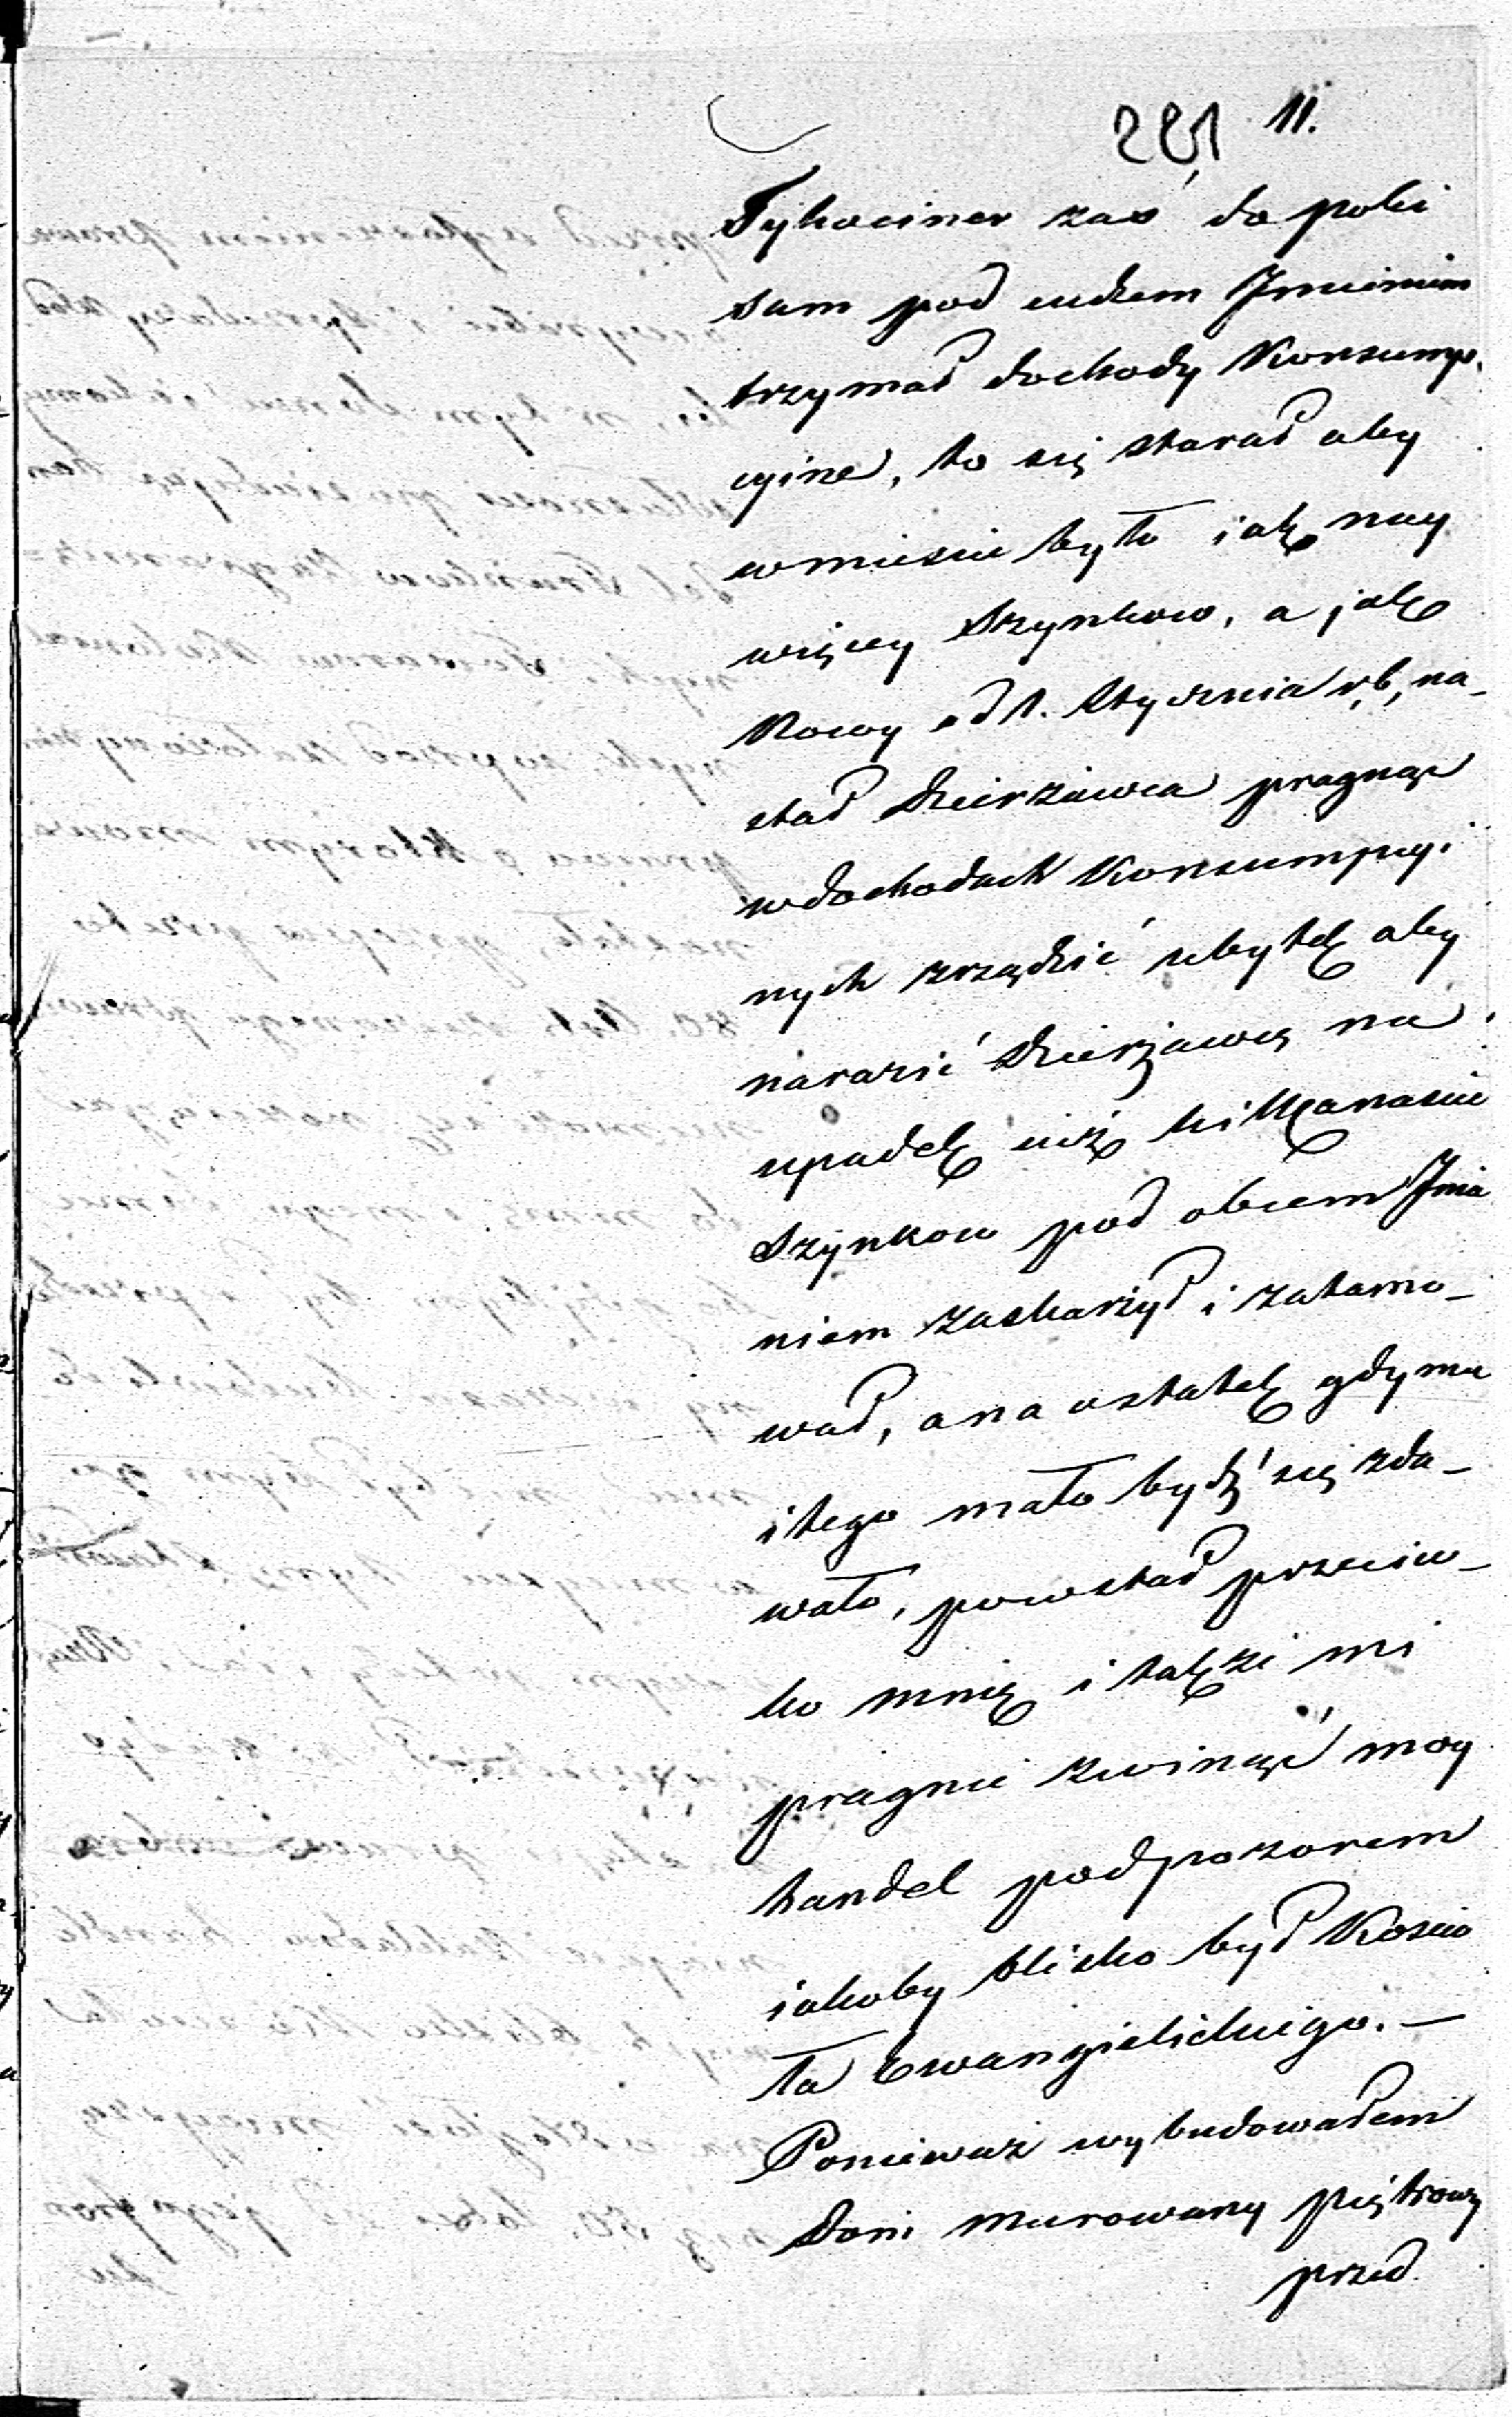 281 11.
Tykociner zaś do poki
sam pod cudzem Jmieniem
trzymał dochody Konsump.
cyine, to się starał aby
w miescie było iak nay
więcey Szynkow, a jak
Nowy od 1. Stycznia r, b, na_
stał Dzierzawca pragnąc
w dochodach Konsumpcyi
nych zrządzić ubytek aby
narazić Dzierzawcę na
upadek iuż kilkanascie
Szynkow pod obcem Jmie
niem zaskarżył i zatamo_
wał, a na ostatek gdy mu
i tego mało bydź się zda_
wało, powstał przeciw_
ko mnie i takze mi
pragnie zwinąć moy
handel pod pozorem
iakoby blisko był Koscio
ła Ewangielickiego. —
Ponieważ wybudowałem
Dom murowany piętrowy
przed